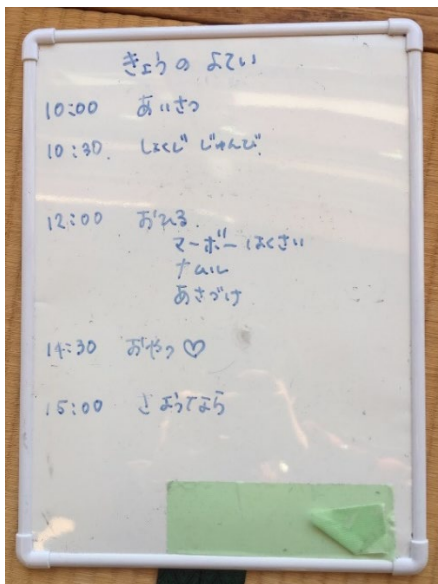 きょうの よてい
10:00 あいさつ
10:30 しょくじ じゅんび
12:00 おひる
マーボーはくさい
ナムル
あさづけ
14:30 おやつ♡
15:00 さようなら